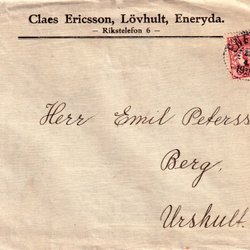 Claes Ericsson, Lövhult, Eneryda.
— Rikstelefon 6 —
Herr Emil Peterss
Berg,
Urshult.